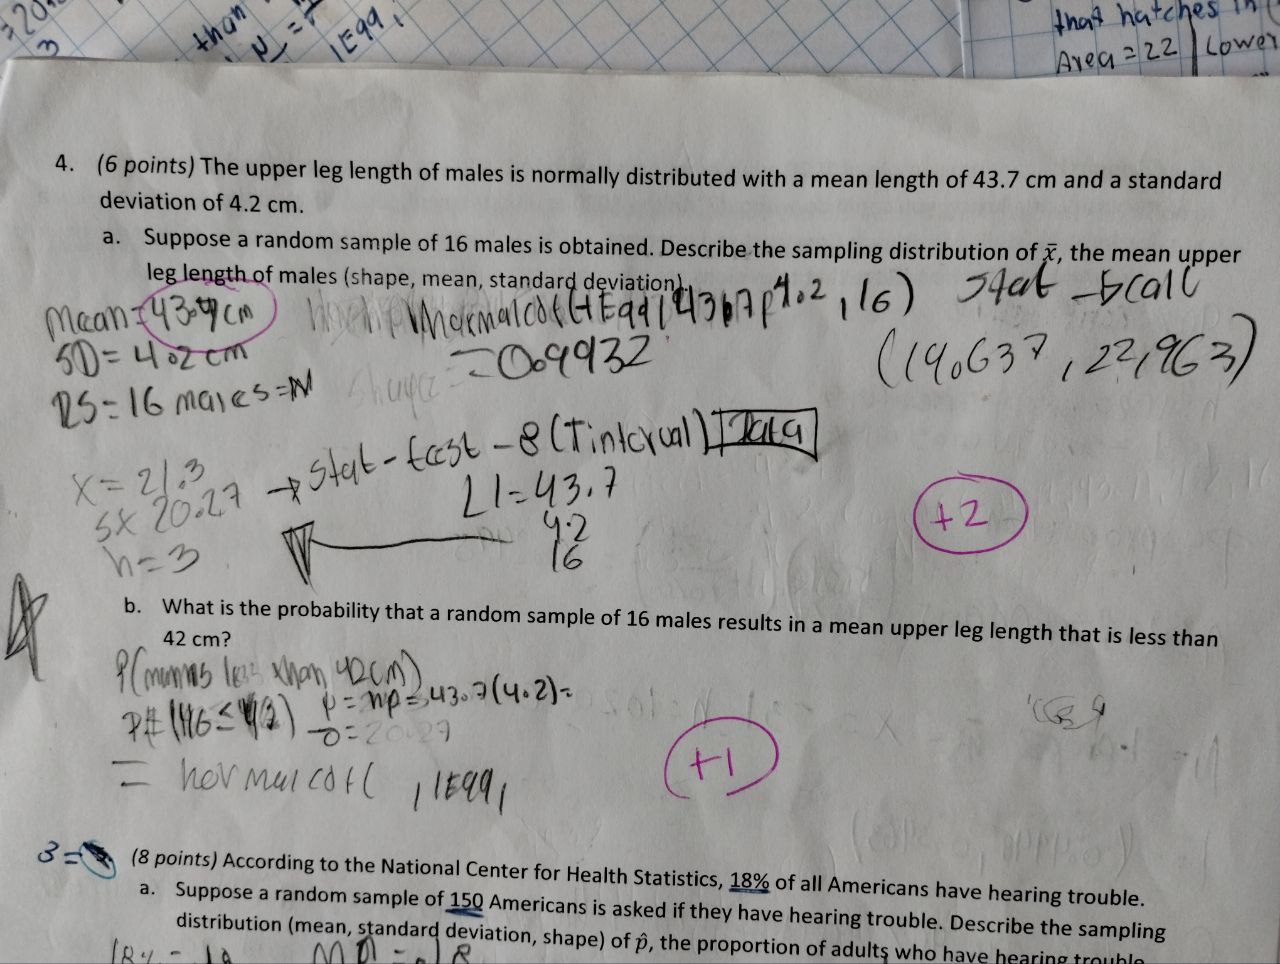 =20
3
than
1E99,
that hatches in
Area = 22 | Lower
4. (6 points) The upper leg length of males is normally distributed with a mean length of 43.7 cm and a standard
deviation of 4.2 cm.
a. Suppose a random sample of 16 males is obtained. Describe the sampling distribution of x̄, the mean upper
leg length of males (shape, mean, standard deviation).
Mean=43.7cm
4.2, 16) Stat - calc
SD=4.2 cm
=0.9932
(19.637, 22,963)
RS=16 males=N
shape
x=21.3
Sx 20.27 → Stat-test-8(Tinterval) Data
n=3
L1=43.7
4.2
16
+2
b. What is the probability that a random sample of 16 males results in a mean upper leg length that is less than
42 cm?
less than 42cm)
μ=np=43.7(4.2)=
σ=20.27
= normalcdf( , 1E99,
+1
3=
(8 points) According to the National Center for Health Statistics, 18% of all Americans have hearing trouble.
a. Suppose a random sample of 150 Americans is asked if they have hearing trouble. Describe the sampling
distribution (mean, standard deviation, shape) of p̂, the proportion of adults who have hearing trouble